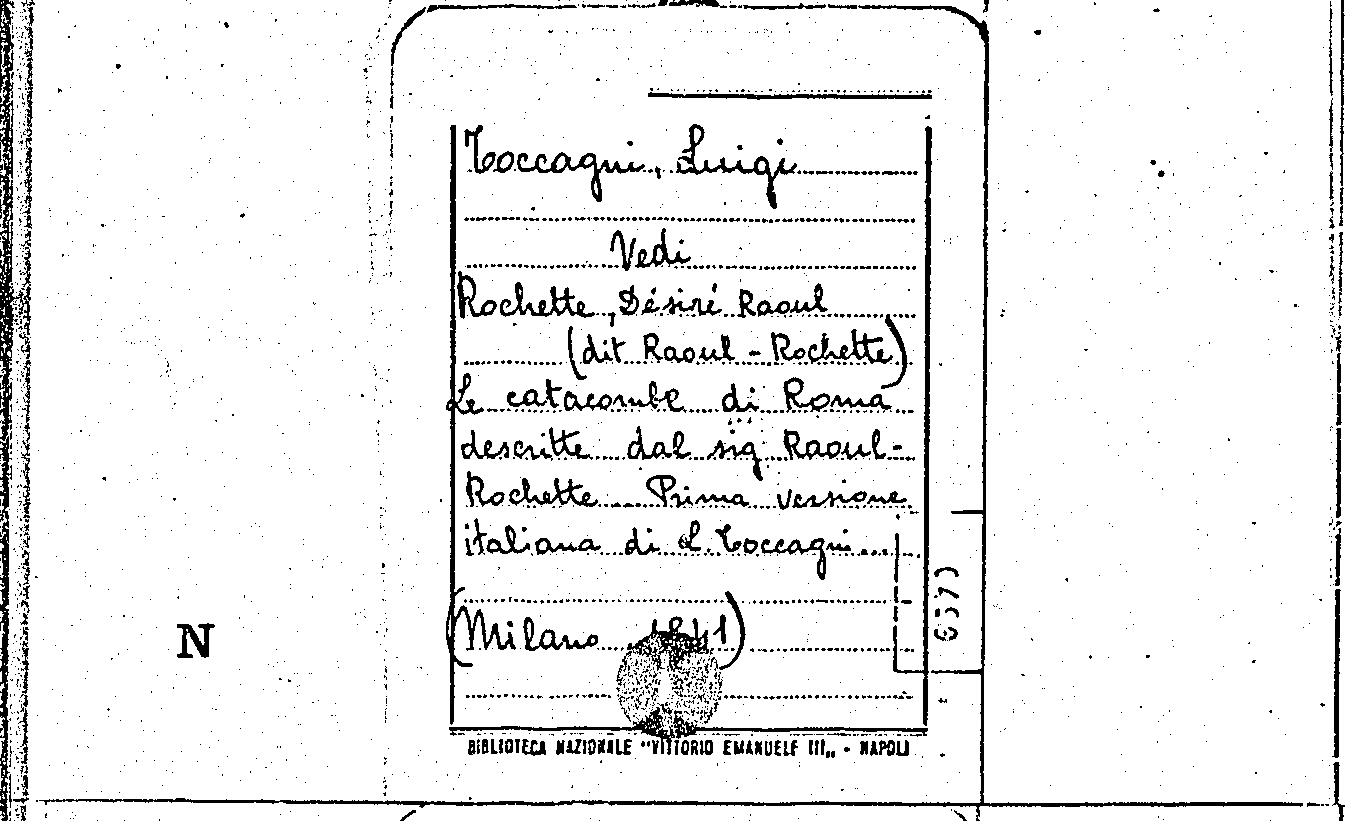 Toccagni, Luigi
Vedi
Rochette, Désiré Raoul
(dit Raoul-Rochette)
Le catacombe di Roma
descritte dal sig Raoul-
Rochette... Prima versione
italiana di L. Toccagni...
(Milano 1841)
N
BIBLIOTECA NAZIONALE "VITTORIO EMANUELE III„ - NAPOLI